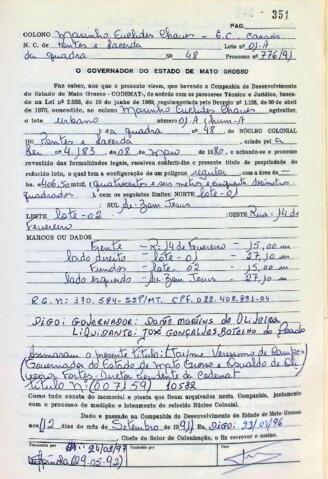 PAG. 351
COLONO Marinho Euclides Chaves - E.C.
N. C. de Pontes e Lacerda Lote nº 01-A
da quadra nº 48 Processo 776/91
O GOVERNADOR DO ESTADO DE MATO GROSSO
Faz saber, aos que o presente virem, que havendo a Companhia de Desenvolvimento
do Estado de Mato Grosso - CODEMAT, de acordo com os pareceres Técnico e Jurídico, baseado
na Lei nº 2.933, de 10 de junho de 1969, regulamentada pelo Decreto nº 1.138, de 30 de abril
de 1970, concedido, ao colono Marinho Euclides Chaves agricultor,
o lote urbano número 01-A (hum-A
) da quadra nº 48, DO NÚCLEO COLONIAL
DE Pontes e Lacerda criado pel a
Lei nº 4.183 de 08 de maio de 1980, e achando-se o processo
revestido das formalidades legais, resolveu conferir-lhe o presente título de propriedade do
referido lote, o qual tem a configuração de um polígono regular com a área de —
ha 406,50 mts2, (quatrocentos e seis metros e cinquenta decímetros
quadrados) e com os seguintes limites: NORTE lote-01
SUL: Av: Bom Jesus
LESTE lote-02 :OESTE Rua: 14 de
Fevereiro
MARCOS OU DADOS
Frente — R: 14 de Fevereiro — 15,00 m
lado direito — lote-01 — 27,10 m
Fundos — lote 02 — 15,00 m
lado esquerdo — Av: Bom Jesus — 27,10 m
R.G. nº: 170.584-SSP/MT. CPF. 022.402.891-04
DIGO: GOVERNADOR: DANTE MARTINS DE OLIVEIRA
LIQUIDANTE: JOSÉ GONÇALVES BOTELHO do Prado
Assinaram o presente título: (Jayme Veríssimo de Campos
Governador do Estado de Mato Grosso e
Fortes-Diretor Presidente da Codemat
título Nº (007159) 10582
Como tudo consta do memorial e planta que ficam arquivados nesta Companhia, juntamente
com o processo de medição e loteamento do referido Núcleo Colonial.
Dado e passado na Companhia de Desenvolvimento do Estado de Mato Grosso
aos (12 dias do mês de Setembro de 1991) Eu, DIGO: 23/07/96
Chefe do Setor de Colonização, o fiz escrever e assino.
Transcrito por
(29-05-92)
Visto